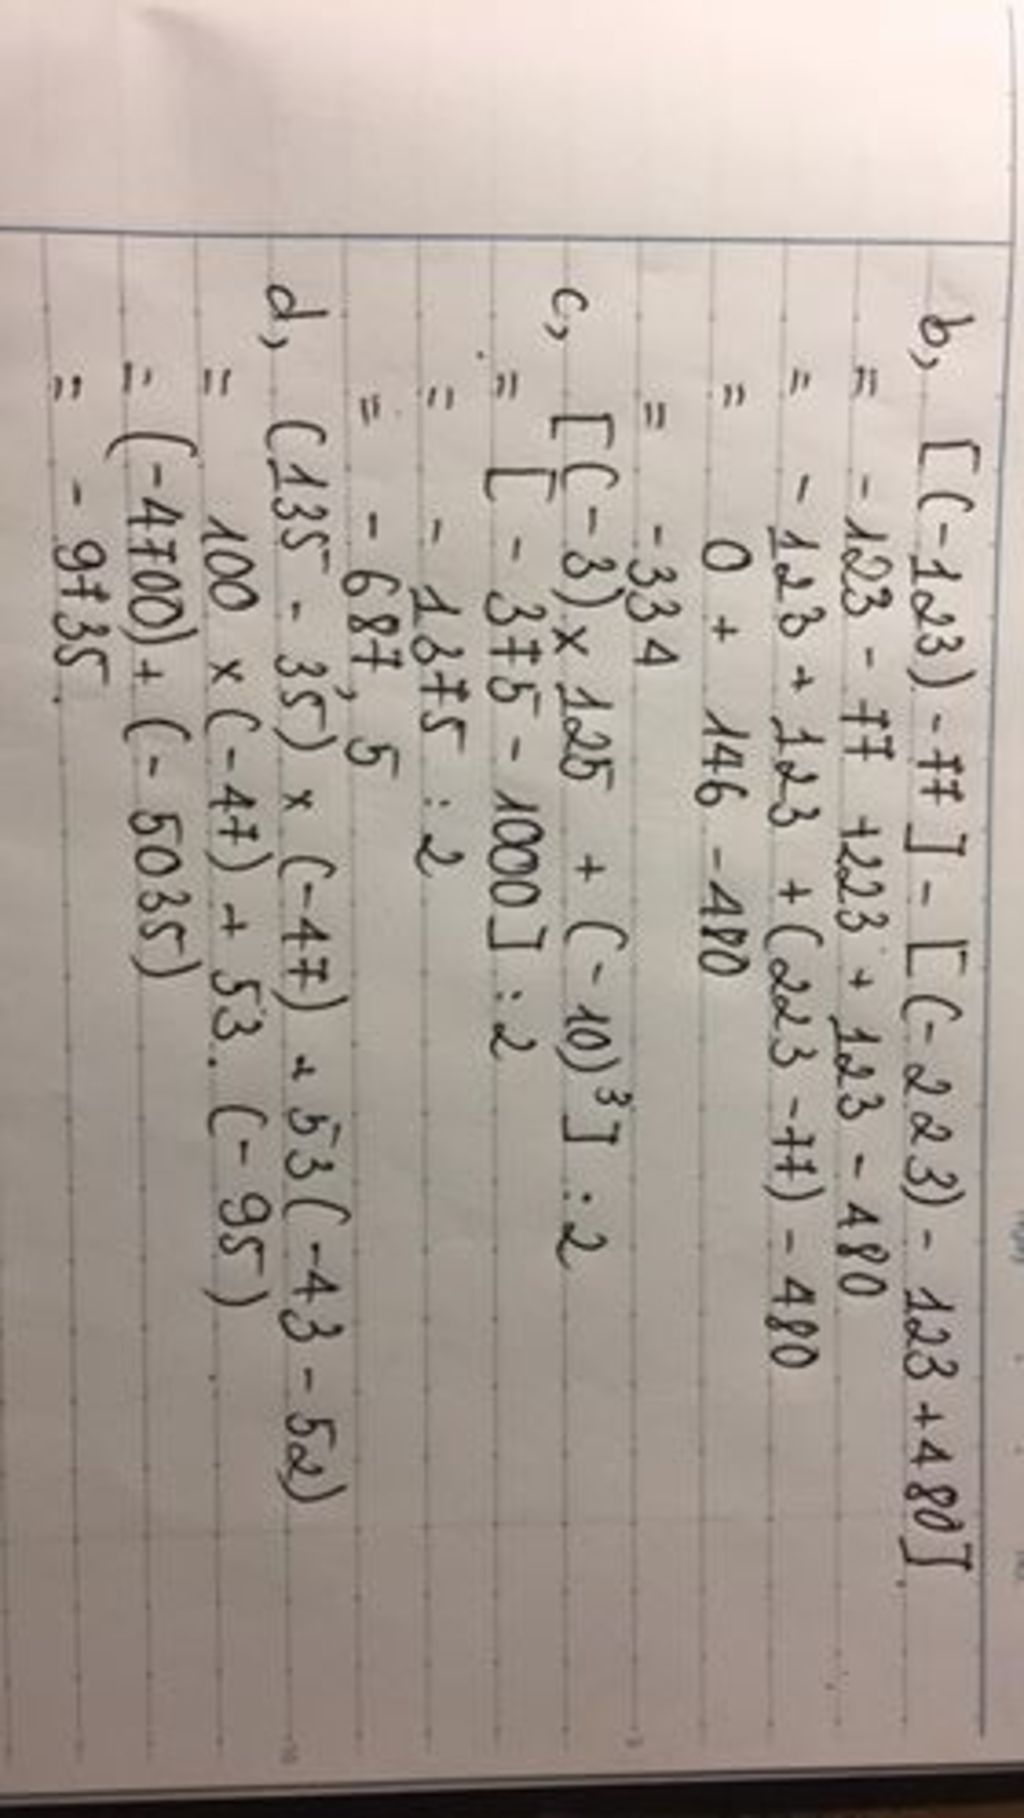 b, [(-123) - 77] - [(-223) - 123 + 480]
= -123 - 77 + 223 + 123 - 480
= -123 + 123 + (223 - 77) - 480
= 0 + 146 - 480
= -334
c, [(-3) x 125 + (-10)³] : 2
= [-375 - 1000] : 2
= -1375 : 2
= -687,5
d, (135 - 35) x (-47) + 53(-43 - 52)
= 100 x (-47) + 53. (-95)
= (-4700) + (-5035)
= -9735.